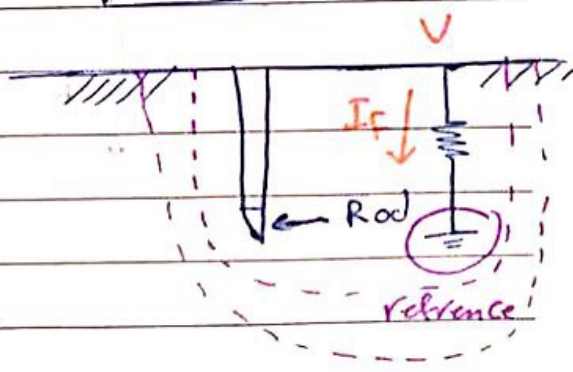 V
If
Rod
refrence